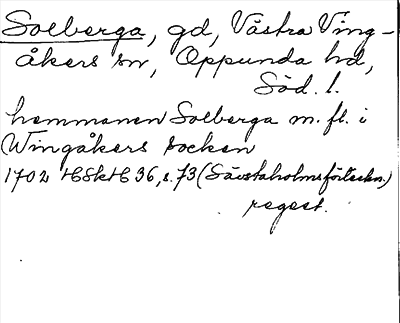 Solberga, gd, Västra Ving-
åkers sn, Oppunda hd,
Söd. l.
hemmanen Solberga m. fl. i
Wingåkers socken
1702 HSkH 36, s. 73 (Sävstaholmsförteckn.)
regest.